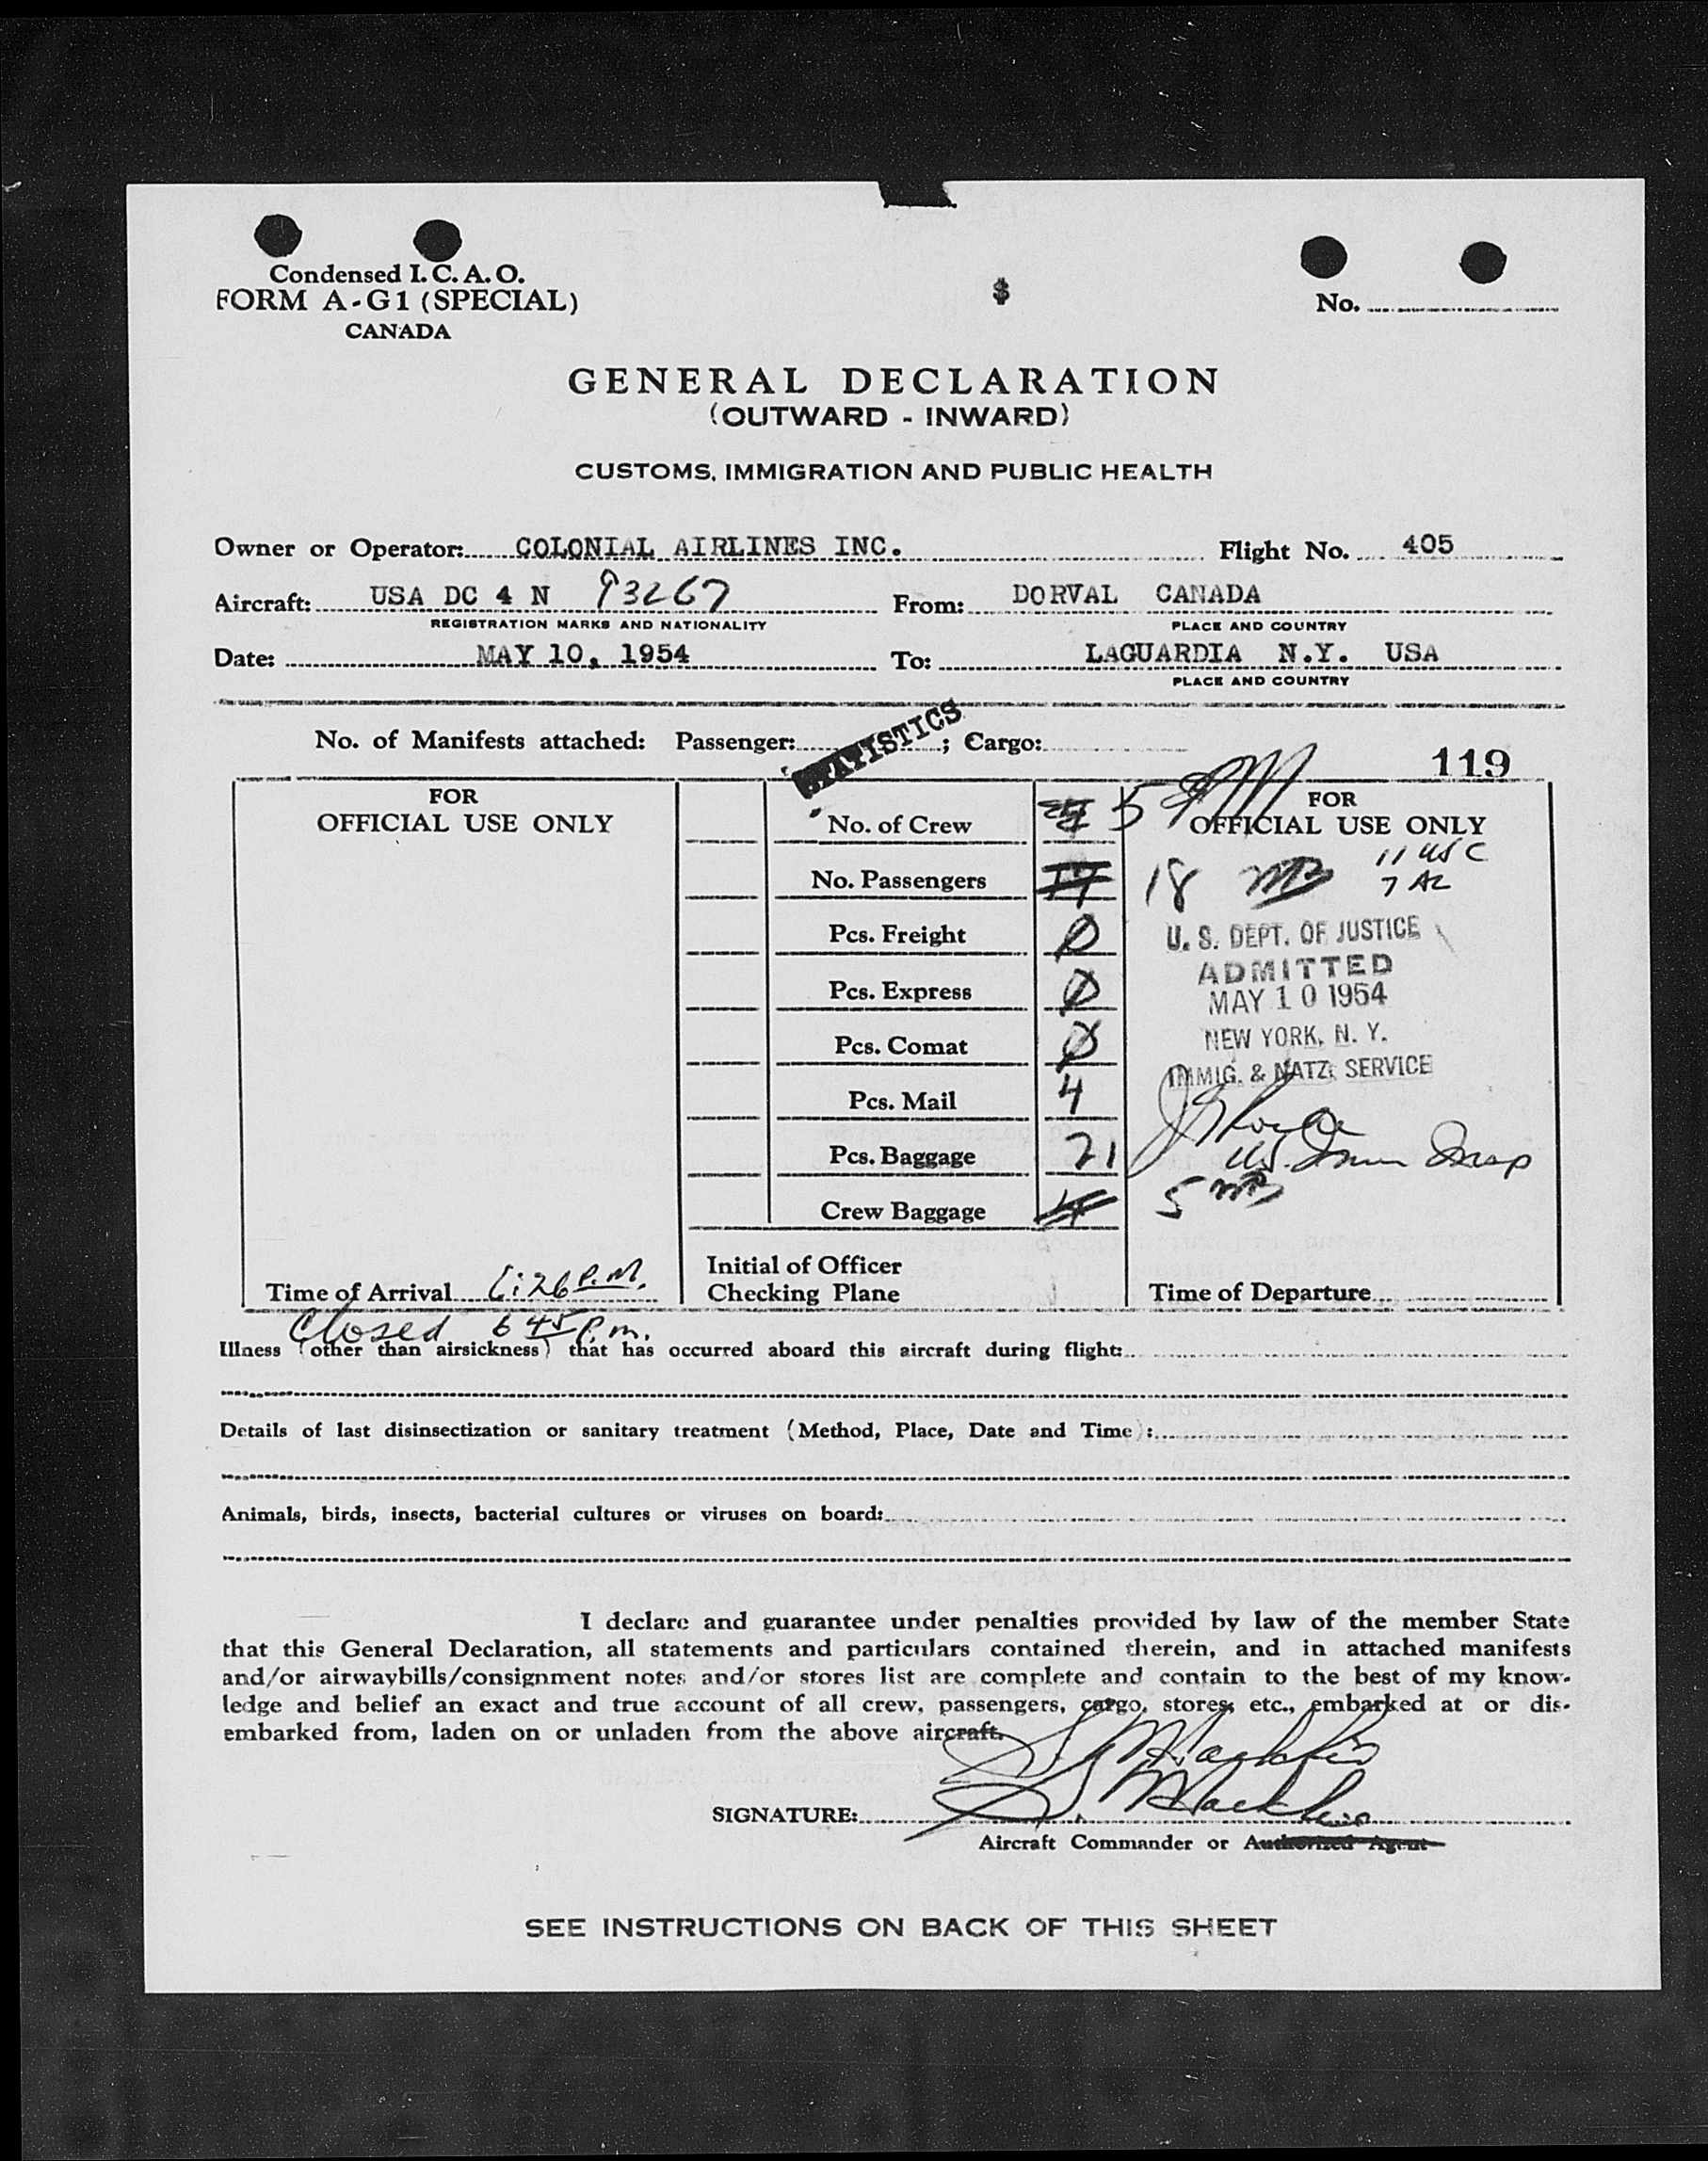 Condensed I.C.A.O.
FORM A-G1 (SPECIAL)
CANADA
$
No.
GENERAL DECLARATION
(OUTWARD - INWARD)
CUSTOMS, IMMIGRATION AND PUBLIC HEALTH
Owner or Operator: COLONIAL AIRLINES INC. Flight No. 405
Aircraft: USA DC 4 N 93267 From: DORVAL CANADA
REGISTRATION MARKS AND NATIONALITY PLACE AND COUNTRY
Date: MAY 10, 1954 To: LAGUARDIA N.Y. USA
PLACE AND COUNTRY
No. of Manifests attached: Passenger: STATISTICS ; Cargo:
119
FOR
OFFICIAL USE ONLY
No. of Crew 5
No. Passengers 17 18
Pcs. Freight 0
Pcs. Express 0
Pcs. Comat 0
Pcs. Mail 4
Pcs. Baggage 21
Crew Baggage 4 5
FOR
OFFICIAL USE ONLY
11 USC
7 AL
U. S. DEPT. OF JUSTICE
ADMITTED
MAY 10 1954
NEW YORK, N. Y.
IMMIG. & NATZ. SERVICE
U.S. Imm Insp
Time of Arrival 6:26 P.M.
Initial of Officer
Checking Plane
Time of Departure
Closed 6 45 P.m.
Illness (other than airsickness) that has occurred aboard this aircraft during flight:
Details of last disinsectization or sanitary treatment (Method, Place, Date and Time):
Animals, birds, insects, bacterial cultures or viruses on board:
I declare and guarantee under penalties provided by law of the member State
that this General Declaration, all statements and particulars contained therein, and in attached manifests
and/or airwaybills/consignment notes and/or stores list are complete and contain to the best of my know-
ledge and belief an exact and true account of all crew, passengers, cargo, stores, etc., embarked at or dis-
embarked from, laden on or unladen from the above aircraft.
SIGNATURE:
Aircraft Commander or Authorized Agent
SEE INSTRUCTIONS ON BACK OF THIS SHEET